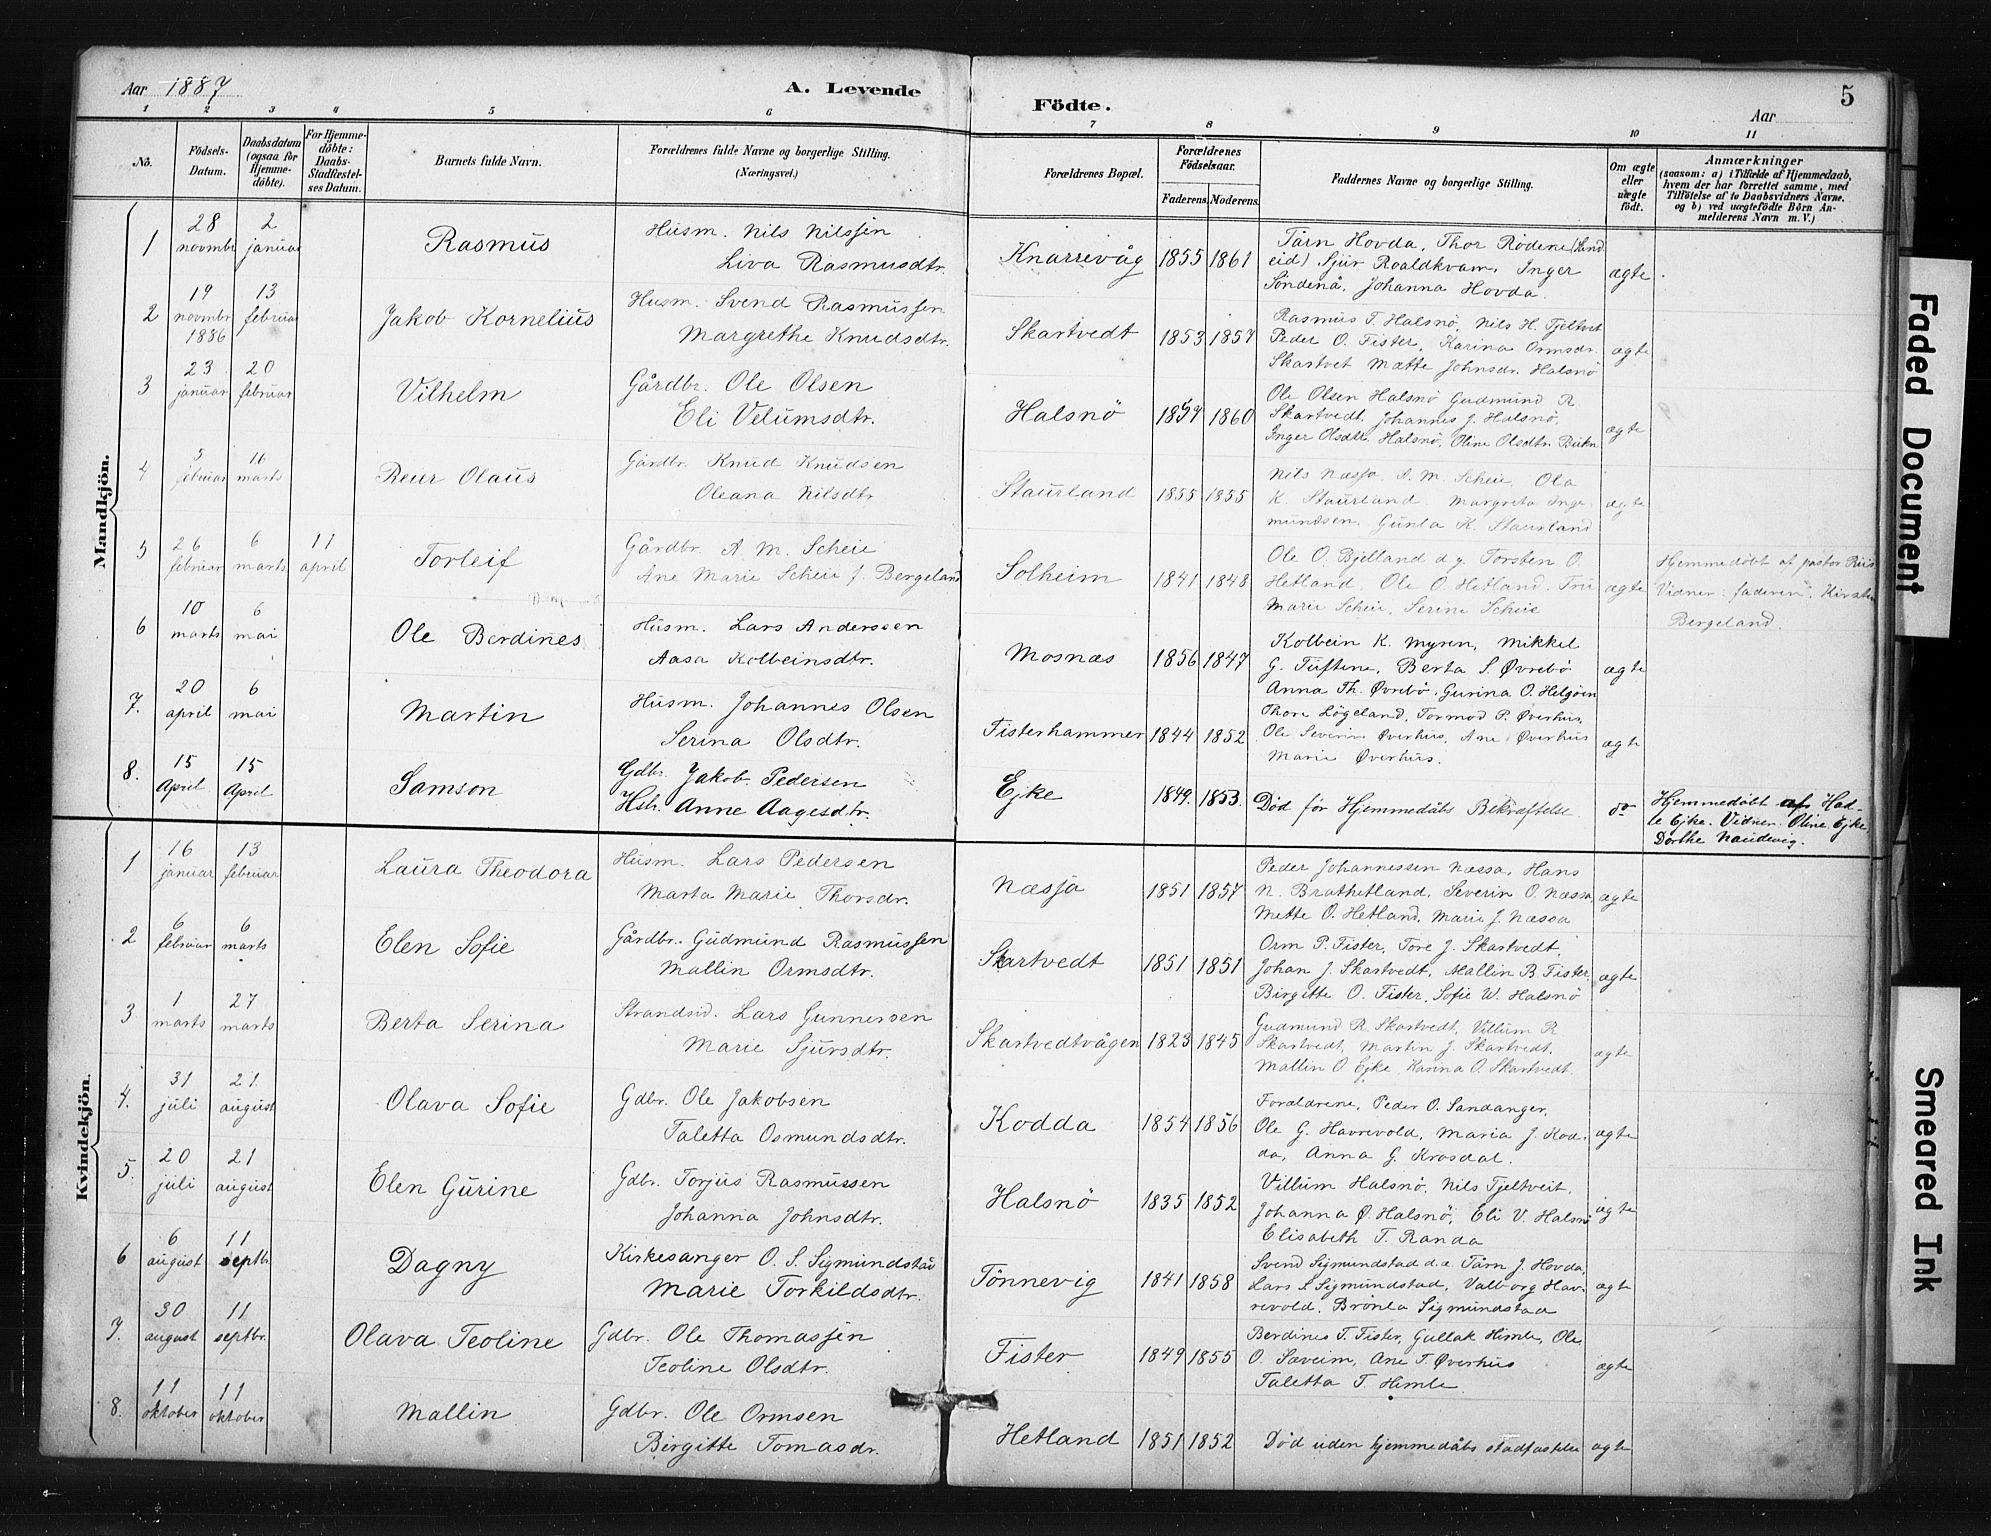 Aar 1887
A. Levende
Födte.
Aar
5
1 2 3 4 5 6 7 8 9 10 11
No.
Födsels-
Datum.
Daabsdatum
(ogsaa for
Hjemme-
döbte).
For Hjemme-
döbte:
Daabs-
Stadfestel-
ses Datum.
Barnets fulde Navn.
Forældrenes fulde Navne og borgerlige Stilling.
(Næringsvei.)
Forældrenes Bopæl.
Forældrenes
Födselsaar.
Faderens. Moderens.
Faddernes Navne og borgerlige Stilling.
Om ægte
eller
uægte
födt.
Anmærkninger
(saasom: a) i Tilfælde af Hjemmedaab,
hvem der har forrettet samme, med
Tilföielse af to Daabsvidners Navne,
og b) ved uægtefödte Börn An-
melderens Navn m. V.)
Mandkjön.
1
28 novmbr
2 januar
Rasmus
Husm. Nils Nilssen
Liva Rasmusdtr.
Knarrevåg
1855 1861
Tårn Hovda, Thor Rödene (Sand
eid) Sjur Roaldkvam, Inger
Söndenå, Johanna Hovda.
ægte
2
19 novmbr 1886
13 februar
Jakob Kornelius
Husm. Svend Rasmussen
Margrethe Knudsdtr.
Skartvedt
1853 1857
Rasmus T. Halsnö, Nils H. Tjeltvet
Peder O. Fister, Karina Ormsdr.
Skartvet Mætte Johnsdr. Halsnö
ægte
3
23 januar
20 februar
Vilhelm
Gårdbr. Ole Olsen
Eli Velumsdtr.
Halsnö
1857 1860
Ole Olsen Halsnö Gudmund R.
Skartvedt, Johannes J. Halsnö,
Inger Olsdtr. Halsnö, Oline Olsdtr.
ægte
4
5 februar
16 marts
Reier Olaus
Gårdbr. Knud Knudsen
Oleana Nilsdtr
Staurland
1855 1855
Nils Næsja A. M. Scheie, Ola
K. Staurland. Margreta Inge
mundsen. Gunla K. Staurland
ægte
5
26 februar
6 marts
11 april
Torleif
Gårdbr. A. M. Scheie
Ane Marie Scheie f. Bergeland
Solheim
1841 1848
Ole O. Bjelland d.y. Torsten O.
Hetland, Ole O. Hetland. Fru
Marie Scheie, Serine Scheie
ægte
Hjemmedöbt af pastor Riis
Vidner: faderen, Kirsten
Bergeland.
6
10 marts
6 mai
Ole Berdines
Husm. Lars Anderssen
Aasa Kolbeinsdtr.
Mosnæs
1856 1847
Kolbein K. Myren, Mikkel
G. Tuftene, Berta S. Øvrebö
Anna Th. Øvrebö. Gurina O. Helgöen
ægte
7.
20 april
6 mai
Martin
Husm. Johannes Olsen
Serina Olsdtr.
Fisterhammer
1844 1852
Thore Lögeland, Tormod P. Överhus,
Ole Severin Överhus, Ane Överhus
Marie Överhus.
ægte
8.
15 April
15 April
Samson
Gdbr. Jakob Pedersen
Hstr. Anne Aagesdtr.
Ejke
1849. 1853.
Död för Hjemmedåbs Bekræftelse
do
Hjemmedöbt af Had-
le Ejke. Vidner. Oline Ejke
Dorthe Naudvig.
Kvindekjön.
1
16 januar
13 februar
Laura Theodora
Husm. Lars Pedersen
Marta Marie Thorsdr.
Næsja
1851 1857
Peder Johannessen Næssa, Hans
N. Brathetland, Severin O. Næssa
Mette O. Hetland, Marie J. Næssa
ægte
2
6 februar
6 marts
Elen Sofie
Gårdbr. Gudmund Rasmussen
Mallin Ormsdtr.
Skartvedt
1851 1851
Orm P. Fister, Tore J. Skartvedt,
Johan J. Skartvedt, Mallin B. Fister,
Birgitte O. Fister, Sofie W. Halsnö
ægte
3
1 marts
27 marts
Berta Serina
Strandsid. Lars Gunnersen
Marie Sjursdtr.
Skartvedtvågen
1823 1845
Gudmund R. Skartvedt, Villum R
Skartvedt, Martin J. Skartvedt,
Mallin O. Ejke, Karina O. Skartvedt
ægte
4.
31 juli
21 august
Olava Sofie
Gdbr. Ole Jakobsen
Taletta Osmundsdtr.
Kodda
1854 1856
Forældrene, Peder O. Sandanger,
Ole G. Havrevold, Maria J. Kod-
da, Anna G. Krosdal.
ægte
5.
20 juli
21 august
Elen Gurine
Gdbr. Torjus Rasmussen
Johanna Johnsdtr.
Halsnö
1835 1852
Villum Halsnö. Nils Tjeltveit,
Johanna Ø. Halsnö, Eli V. Halsnö
Elisabeth T. Randa
ægte
6
6 august
11 septbr.
Dagny
Kirkesanger O. S. Sigmundstad
Marie Torkildsdtr.
Tönnevig
1841 1858
Svend Sigmundstad d.æ. Tårn J. Hovda,
Lars S. Sigmundstad, Valborg Hav-
revold. Brönla Sigmundstad
ægte
7.
30 august
11 septbr.
Olava Teoline
Gdbr. Ole Thomassen
Teoline Olsdtr.
Fister
1849 1855
Berdines T. Fister, Gullak Himle, Ole
O. Sæveim, Ane T. Överhus
Taletta T. Himle.
ægte
8.
11 oktober
11 oktober
Mallin
Gdbr. Ole Ormsen
Birgitte Tomasdr.
Hetland
1851 1852
Död uden hjemmedåbs stadfæstelse
ægte
Faded Document
Smeared Ink